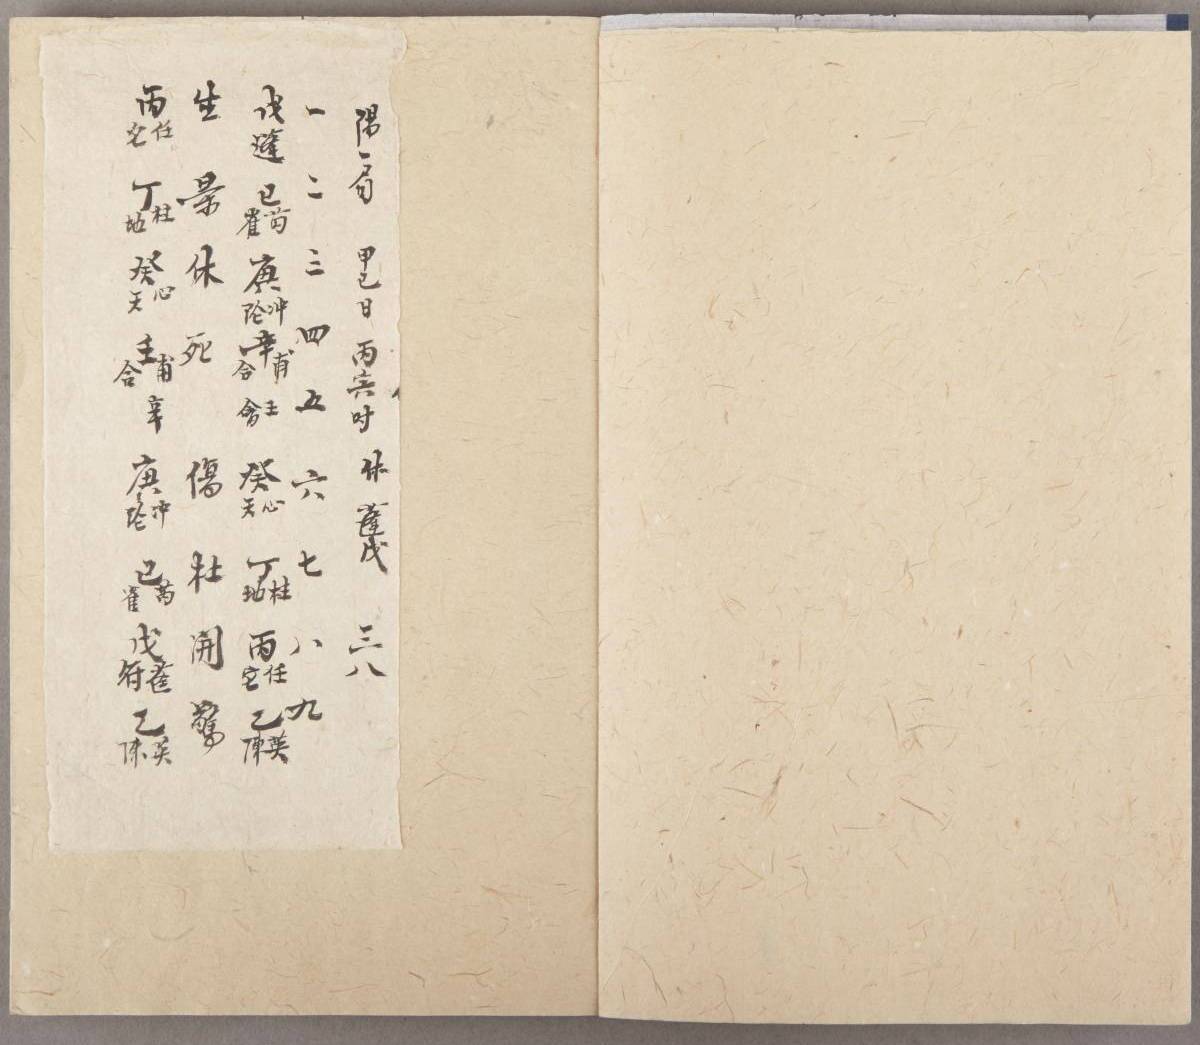 陽一局 甲己日 丙寅時 休 蓬戊 三八
一 二 三 四 五 六 七 八 九
戊蓬 己芮雀 庚冲陰 辛甫合 壬禽 癸心天 丁柱地 丙任 乙英陳
生 景 休 死 傷 杜 開 驚
丙任 丁柱地 癸心天 壬甫合 辛 庚冲陰 己芮雀 戊蓬符 乙英陳